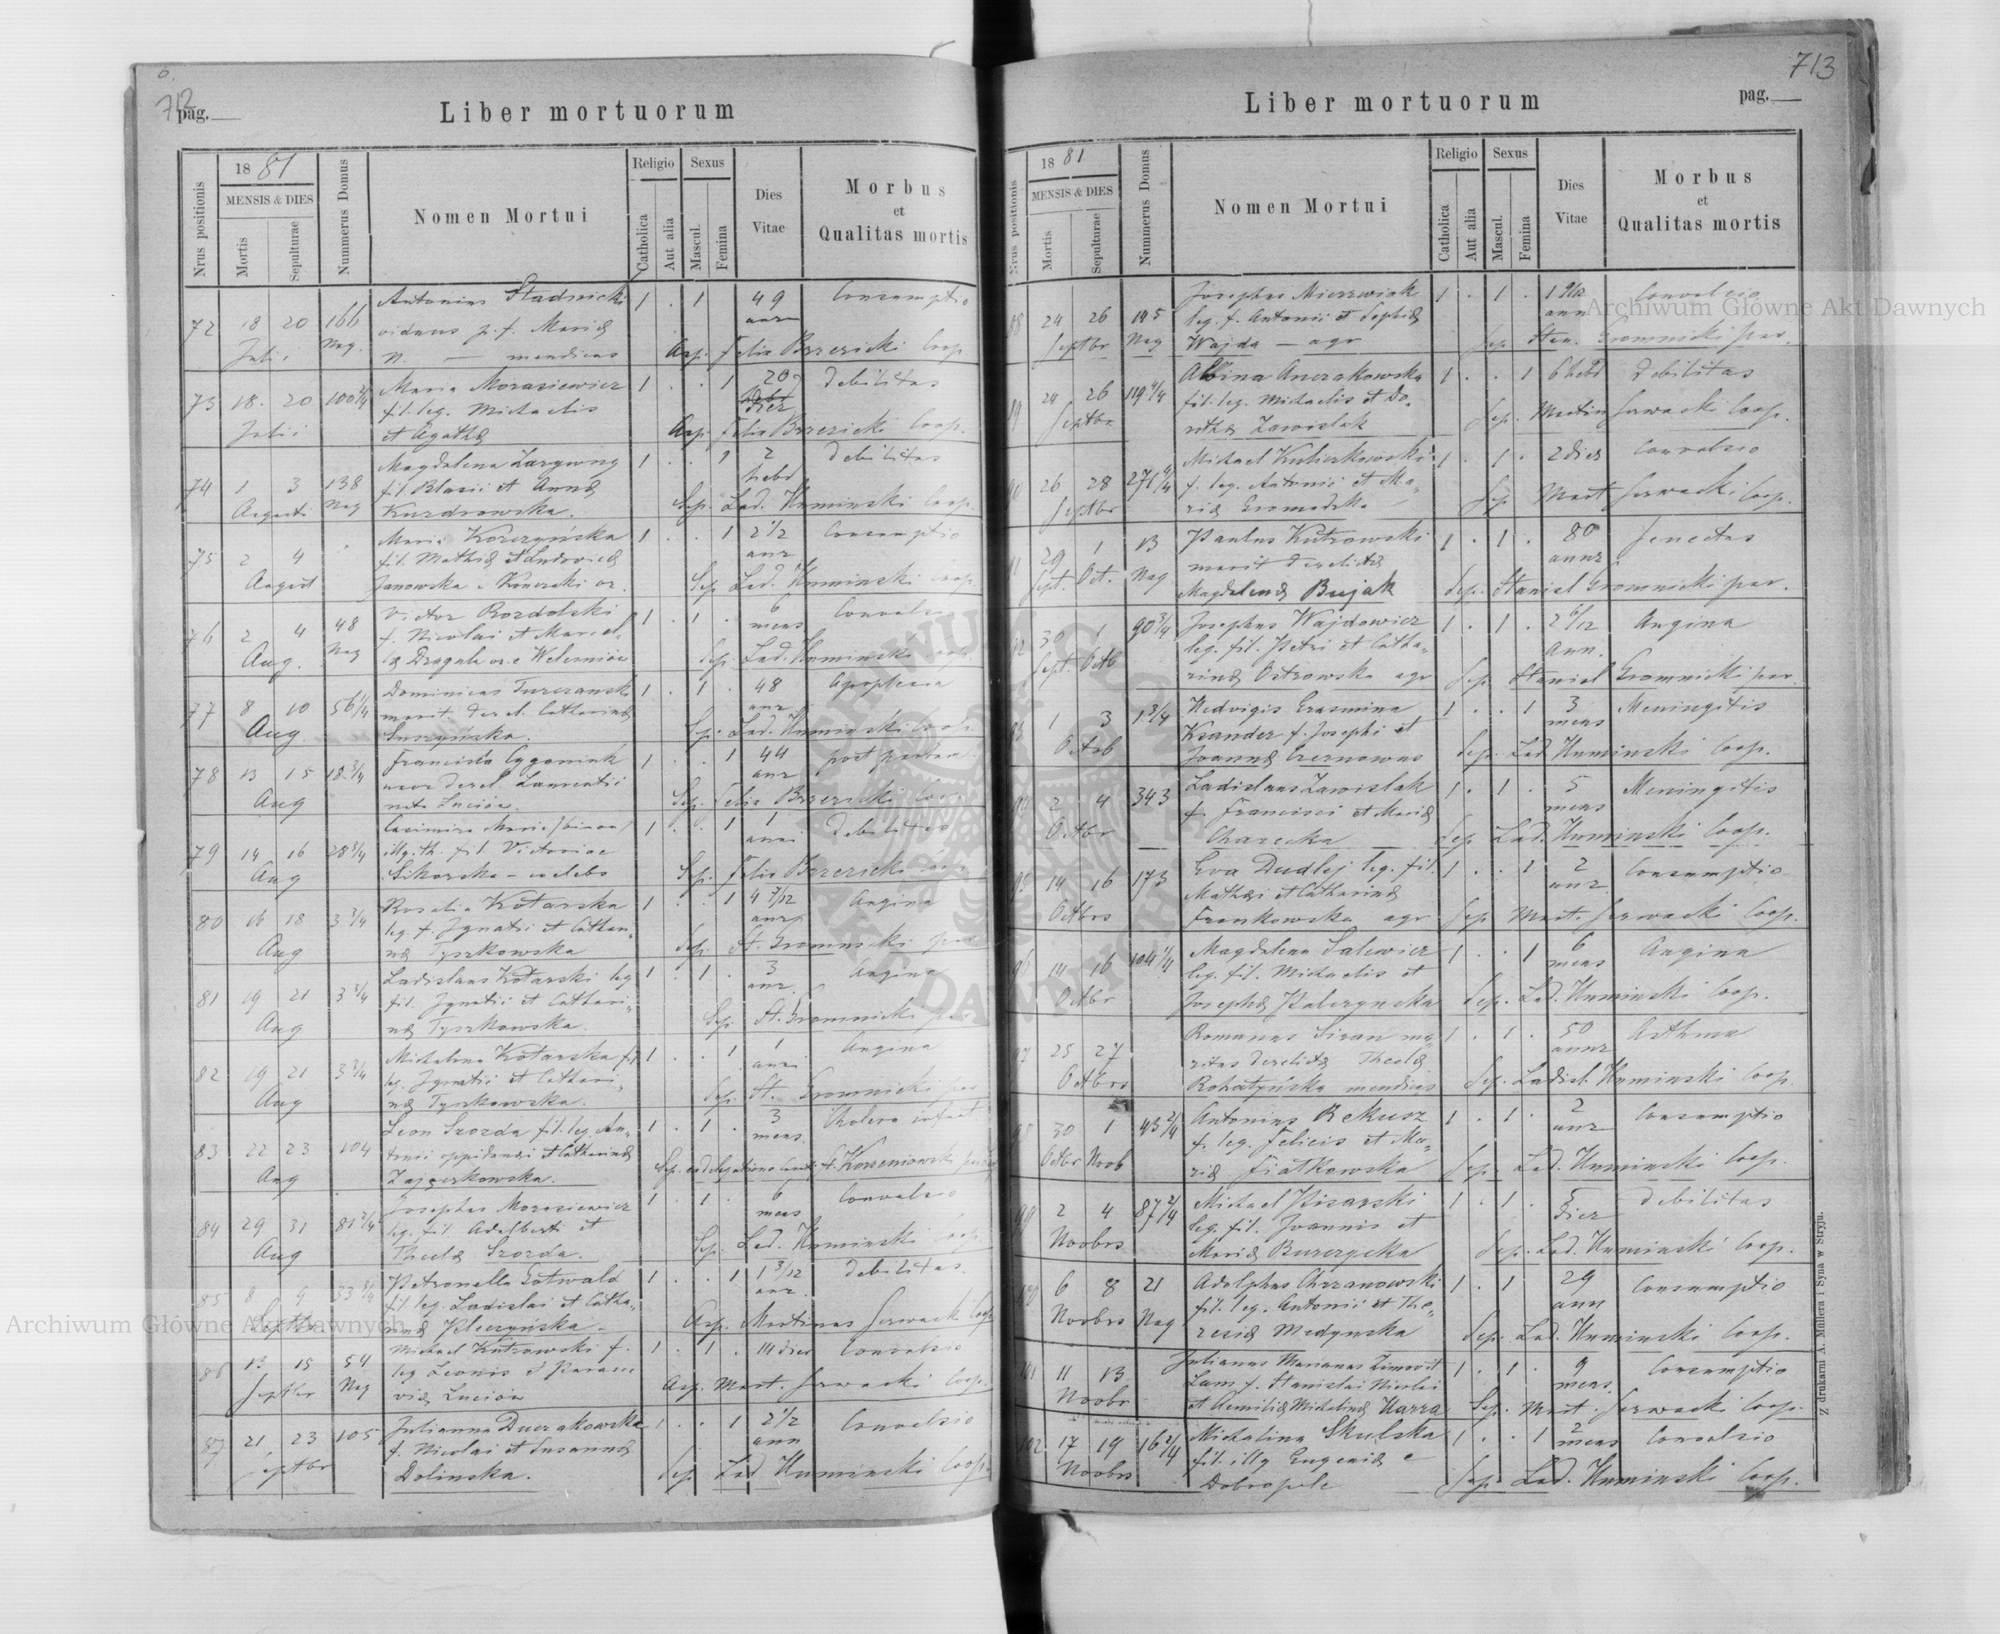 712
pag.
Liber mortuorum
Nrus positionis
1881
MENSIS & DIES
Mortis
Sepulturae
Nummerus Domus
Nomen Mortui
Religio
Catholica
Aut alia
Sexus
Mascul.
Femina
Dies
Vitae
Morbus
et
Qualitas mortis
Antonius Stadnicki 1 . 1 49 Consumptio
72 18 20 166 viduus p. f. Mariæ ann
Julii Nag. N. — mendicus Asp. Felix Brzezicki Coop
Maria Moraziewicz 1 . . 1 20 debilitas
73 18. 20 100 2/4 fil. leg. Michaelis dier
Julii et Agathæ Asp. Felix Brzezicki Coop.
Magdalena 1 . . 1 2 debilitas
74 1 3 138 fil. Blasii et Annæ hebd
Augusti Nag Sep. Lad. Huminski Coop.
Maria 1 . . 1 2 1/2 Consumptio
75 2 4 fil. Mathiæ et Ludovicæ ann
August Janowska Sep. Lad. Huminski coop.
Victor Rozdolski 1 . 1 . 6 Convulsio
76 2 4 48 f. Nicolai et Marcel- mens
Aug. Nag læ Dragala Sep. Lad. Huminski coop.
Dominicus Turczanski 1 . 1 . 48 Apoplexia
77 8 10 56 1/4 marit. derel. Catharinæ ann
Aug. Sep. Lad. Huminski Coop.
Francisca Cyganiuk 1 . . 1 44 post partum
78 13 15 18 3/4 uxor derel. Laurentii ann
Aug nata Sep. Felix Brzezicki Coop
Casimira Maria /bin. 1 . . 1 1 debilitas
79 14 16 28 3/4 illg. th. fil. Victoriae anni
Aug Sikorska - coelebs Sep. Felix Brzezicki coop
Rosalia Kotarska 1 . . 1 4 7/12 Angina
80 16 18 3 3/4 leg. f. Ignatii et Cathari- ann
Aug næ Tyszkowska Sep. St. Gromnicki par
Ladislaus Kotarski leg 1 . 1 . 3 Angina
81 19 21 3 3/4 fil. Ignatii et Cathari- ann.
Aug næ Tyszkowska. Sep. St. Gromnicki
Michalina Kotarska f. 1 . . 1 1 Angina
82 19 21 3 3/4 leg. Ignatii et Cathari- anni
Aug næ Tyszkowska. Sep. St. Gromnicki par
Leon Szozda fil. leg. An- 1 . 1 . 3 Cholera infant
83 22 23 104 tonii oppidani et Catharinæ mens.
Aug Zajączkowska. Sep. Korzeniowski
Josephus Moraziewicz 1 . 1 . 6 Convulsio
84 29 31 81 2/4 leg. fil. Adalberti et mens
Aug Theclæ Szozda. Sep. Lad. Huminski Coop.
Petronella Gotwald 1 . . 1 1 3/12 debilitas.
85 8 9 33 3/4 fil. leg. Ladislai et Catha- ann.
Septbr rinæ Asp. Martinus Serwacki Coop
Michael Kutrowski f. 1 . 1 . 14 dier Convulsio
86 13 15 54 leg Leonis et Parasce
Septbr Nag viæ Asp. Mart. Serwacki Coop.
Julianna Duczakowska 1 . . 1 2 1/2 Convulsio
87 21 23 105 f. Nicolai et Susannæ ann
Septbr Dolinska. Sep. Lad Huminski Coop
713
Liber mortuorum
pag.
Nrus positionis
1881
MENSIS & DIES
Mortis
Sepulturae
Nummerus Domus
Nomen Mortui
Religio
Catholica
Aut alia
Sexus
Mascul.
Femina
Dies
Vitae
Morbus
et
Qualitas mortis
Josephus Mierzwiak 1 . 1 . 1 Convulsio
88 24 26 145 leg. f. Antonii et Sophiæ ann
Septbr Nag Wajda - agr Sep. Stan. Gromnicki par.
Albina Anczakowska 1 . . 1 6 hebd debilitas
89 24 26 119 4/4 fil. leg. Michaelis et Do-
Septbr rotheæ Zawislak Sep. Martin Serwacki Coop.
Michael Kulczkowski 1 . 1 . 2 dier Convulsio
90 26 28 271 4/4 f. leg. Antonii et Ma-
Septbr riæ Gromadzka Sep. Mart Serwacki Coop.
Paulus Kutrowski 1 . 1 . 80 Senectus
91 29 1 13 marit derelictæ annr
Sept. Oct. Nag Magdalenæ Bujak Sep. Stanisl Gromnicki par.
Josephus Wajdowicz 1 . 1 . 2 6/12 Angina
92 30 1 90 3/4 leg. fil. Petri et Catha- Ann.
Sept. Octb rinæ Ostrowska agr Sep. Stanisl Gromnicki par.
Hedvigis Erasmina 1 . . 1 3 Meningitis
93 1 3 1 3/4 Ksander f. Josephi et mens
Octob Joannæ Czernowus Sep. Lad. Huminski Coop.
Ladislaus Zawislak 1 . 1 . 5 Meningitis
94 2 4 343 f. Francisci et Mariæ mens
Octbr Charecka Sep. Lad. Huminski Coop.
Eva Dudlej leg. fil. 1 . . 1 2 Consumptio
95 14 16 173 Mathæi et Catharinæ ann.
Octbrs Frankowska agr Sep. Mart. Serwacki Coop.
Magdalena Salewicz 1 . . 1 6 Angina
96 14 16 104 1/4 leg. fil. Michaelis et mens
Octbr Josephæ Sep. Lad. Huminski Coop.
Romanus Siran ma- 1 . 1 . 50 Asthma
97 25 27 ritus derelictæ Theclæ annr
Octbrs Rohatyńska mendicus Sep. Ladisl. Huminski Coop.
Antonius Rekusz 1 . 1 . 2 Consumptio
98 30 1 43 2/4 f. leg. Felicis et Ma- ann
Octbr Novb riæ Fiatkowska Sep. Lad. Huminski Coop.
Michael Pisarski 1 . 1 . 5 debilitas
99 2 4 87 2/4 leg. fil. Joannis et dier
Novbrs Mariæ Sep. Lad. Huminski Coop.
Adolphus Chrzanowski 1 . 1 29 Consumptio
100 6 8 21 fil. leg. Antonii et The- ann
Novbrs Nag resiæ Medynska Sep. Lad. Huminski Coop.
Julianus Marianus Zimovit 1 . 1 . 9 Consumptio
101 11 13 Lam f. Stanislai Nicolai mens.
Novbr et Aemiliæ Michalinæ Harra Sep. Mart. Serwacki Coop.
Michalina Skulska 1 . . 1 2 Convulsio
102 17 19 16 2/4 fil. illg Eugeniæ e mens
Novbrs Dobropole Sep. Lad. Huminski Coop.
Z drukarni A. Müllera i Syna w Stryju.
Archiwum Główne Akt Dawnych
Archiwum Główne Akt Dawnych
ARCHIWUM GŁÓWNE AKT DAWNYCH